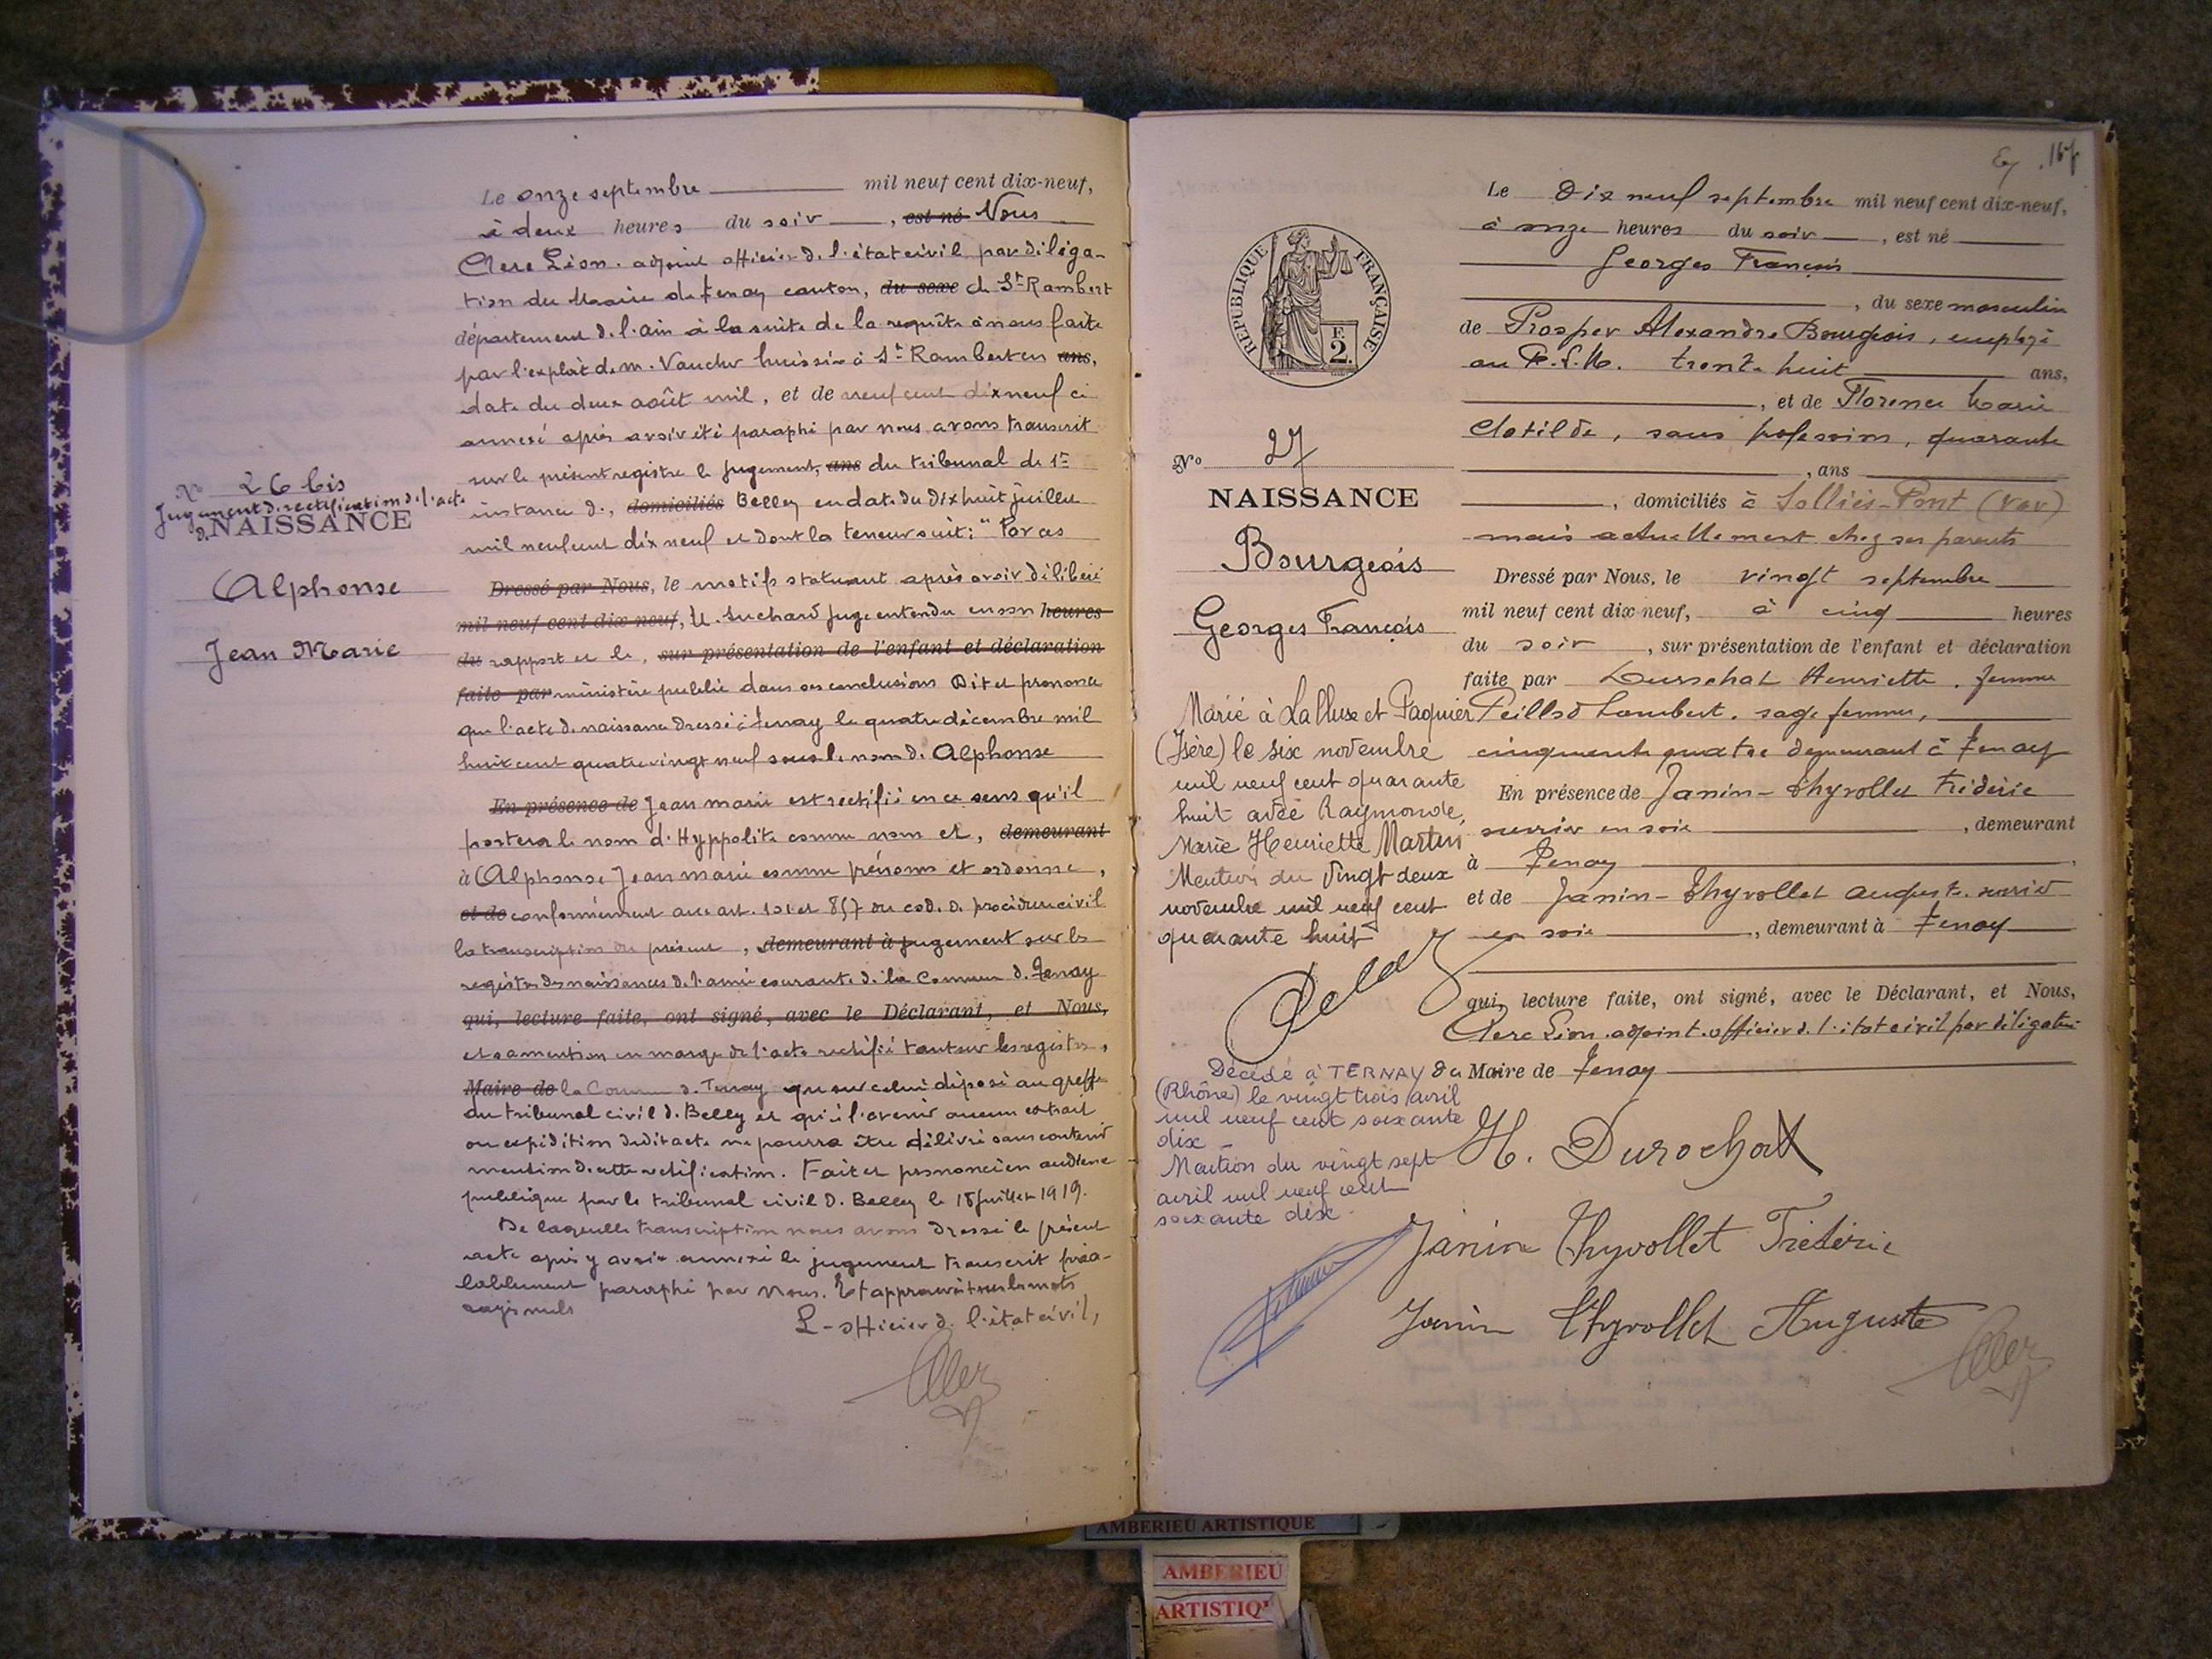 Le onze septembre mil neuf cent dix-neuf,
à deux heures du soir, est né Nous
Clerc Léon. adjoint officier de l'état civil par déléga-
tion du Maire de Tenay canton, du sexe de St Rambert
département de l'ain à la suite de la requête à nous faite
par l'exploit de m. Vaucher huissier à St Rambert en ans,
date du deux août mil, et de neuf cent dix neuf ci
annexé après avoir été paraphé par nous avons transcrit
sur le présent registre le jugement, ans du tribunal de 1re
instance de, domiciliés Belley en date du dix huit juillet
mil neuf cent dix neuf et dont la teneur suit: "Par ces
Dressé par Nous, le motifs statuant après avoir délibéré
mil neuf cent dix-neuf, M. Suchard juge entendu en son heures
du rapport et le, sur présentation de l'enfant et déclaration
faite par ministère public dans ses conclusions Dit et prononce
que l'acte de naissance dressé à Tenay le quatre décembre mil
huit cent quatre vingt neuf sous le nom de Alphonse
En présence de Jean marie est rectifié en ce sens qu'il
portera le nom d'Hyppolite comme nom et, demeurant
à Alphonse Jean marie comme prénoms et ordonne,
et de conformément aux art. 101 et 857 du cod. de procédure civil
la transcription du présent, demeurant à jugement sur les
registres des naissances de l'année courante de la Commune de Tenay
qui, lecture faite, ont signé, avec le Déclarant, et Nous,
et sa mention en marge de l'acte rectifié tant sur les registres,
Maire de la Commune de Tenay que sur celui déposé au greffe
du tribunal civil de Belley et qu'à l'avenir aucun extrait
ou expédition dudit acte ne pourra être délivré sans contenir
mention de cette rectification. Fait et prononcé en audience
publique par le tribunal civil de Belley le 18 juillet 1919.
De laquelle transcription nous avons dressé le présent
acte après y avoir annexé le jugement transcrit préa-
lablement paraphé par nous. Et approuvé tous les mots
rayés nuls
L'officier de l'état civil,
Clerc
No 26 bis
Jugement de rectification de l'acte
de NAISSANCE
Alphonse
Jean Marie
167
RÉPUBLIQUE FRANÇAISE
F.
2.
No 27
NAISSANCE
Bourgeois
Georges François
Marié à La Mure et Paquier
(Isère) le six novembre
mil neuf cent quarante
huit avec Raymonde,
Marie Henriette Martin
Mention du Vingt deux
novembre mil neuf cent
quarante huit
Décédé à TERNAY
(Rhône) le vingt trois avril
mil neuf cent soixante
dix
Mention du vingt sept
avril mil neuf cent
soixante dix.
Le Dix neuf septembre mil neuf cent dix-neuf,
à onze heures du soir, est né
Georges François
, du sexe masculin
de Prosper Alexandre Bourgeois, employé
au P.L.M. trente huit ans,
, et de Florence Marie
Clotilde, sans profession, quarante
, ans
, domiciliés à Solliès-Pont (Var)
mais actuellement chez ses parents
Dressé par Nous, le vingt septembre
mil neuf cent dix-neuf, à cinq heures
du soir, sur présentation de l'enfant et déclaration
faite par Henriette, femme
Lambert. sage femme,
cinquante quatre demeurant à Tenay
En présence de Janin-Thyvollet Frédéric
ouvrier en soie, demeurant
à Tenay,
et de Janin-Thyvollet Auguste. ouvrier
en soie, demeurant à Tenay
qui, lecture faite, ont signé, avec le Déclarant, et Nous,
Clerc Léon. adjoint. officier de l'état civil par délégation
du Maire de Tenay
H. Durochat
Janin Thyvollet Frédéric
Janin Thyvollet Auguste
Clerc
AMBERIEU ARTISTIQUE
AMBERIEU
ARTISTIQ